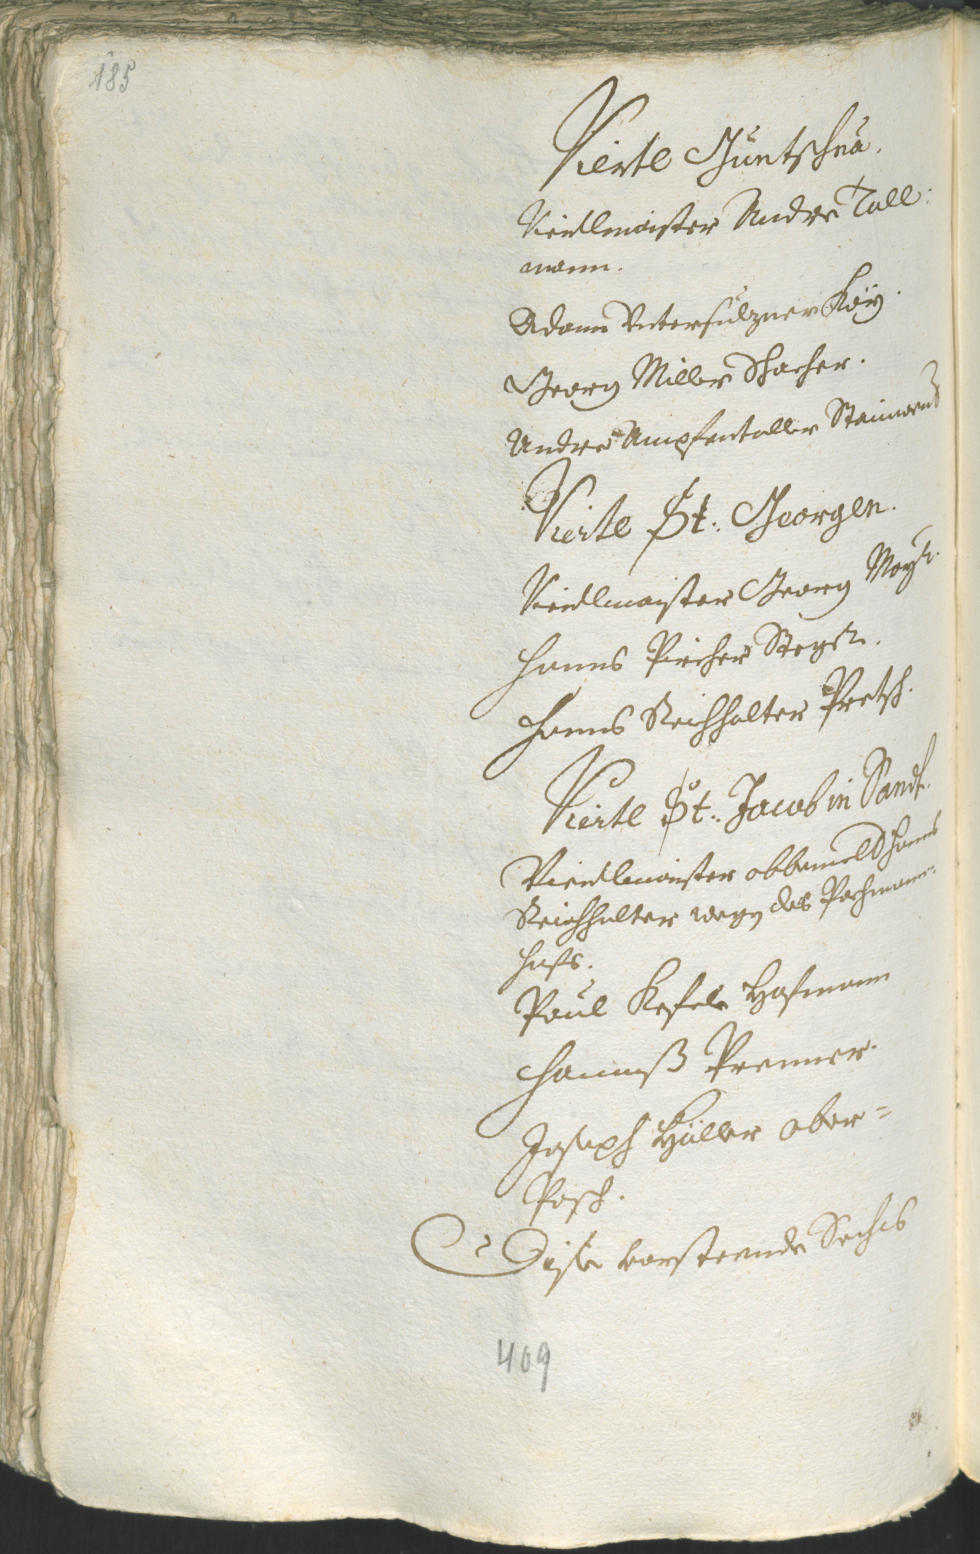 185
Viertl Guntschna.
Viertlmaister Andre Tall:
mann.
Adam Untersulzner Köy.
Georg Miller Schacher.
Andre Ampfentaller Steinwend
Viertl St: Georgen.
Viertlmaister Georg Mayr.
Hanns Pircher Stegr.
Hanns Reichhalter Pretsh.
Viertl St: Jacob in Sandt.
Viertlmaister obbemelt Hanns
Reichhalter wegen des Pachmann-
hofs.
Paul Kofler Hofmann
Hannß Prenner.
Joseph Häller ober=
Posch.
Dise vorsteende Sechs
409